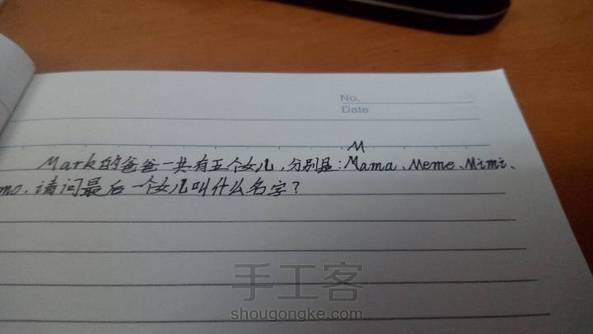 No.
Date
M
Mark的爸爸一共有五个女儿,分别是:Mama、Meme、Mimi、
mo.请问最后一个女儿叫什么名字?
手工客
shougongke.com